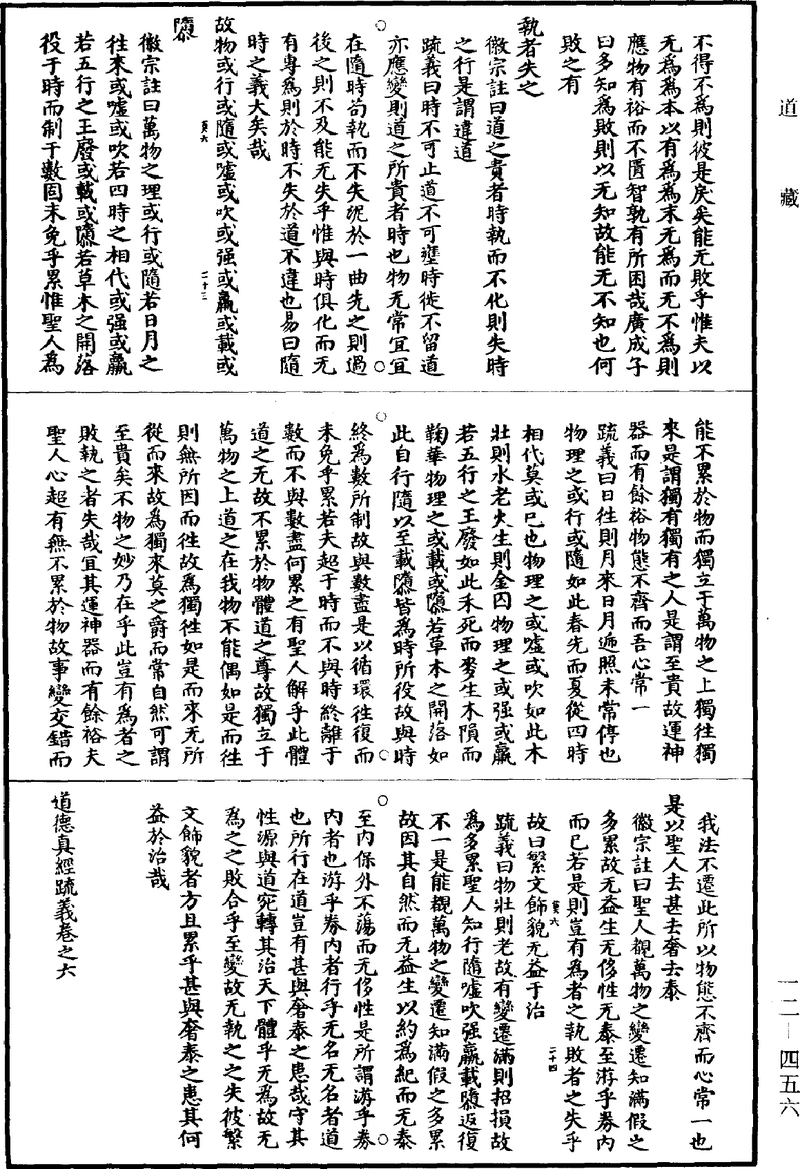 道藏
不得不為則彼是戾矣能无敗乎惟夫以
无為為本以有為為末无為而无不為則
應物有裕而不匱智孰有所困哉廣成子
曰多知為敗則以无知故能无不知也何
敗之有
執者失之
徽宗註曰道之貴者時執而不化則失時
之行是謂違道
疏義曰時不可止道不可壅時徙不留道
亦應變則道之所貴者時也物无常宜宜
在隨時苟執而不失泥於一曲先之則過
後之則不及能无失乎惟與時俱化而无
有專為則於時不失於道不違也易曰隨
時之義大矣哉
故物或行或隨或噓或吹或强或羸或載或
隳
徽宗註曰萬物之理或行或隨若日月之
往來或噓或吹若四時之相代或强或羸
若五行之王廢或載或隳若草木之開落
役于時而制于數固未免乎累惟聖人為
能不累於物而獨立于萬物之上獨往獨
來是謂獨有獨有之人是謂至貴故運神
器而有餘裕物態不齊而吾心常一
疏義曰日往則月來日月遞照未常停也
物理之或行或隨如此春先而夏從四時
相代莫或已也物理之或噓或吹如此木
壯則水老火生則金囚物理之或强或羸
若五行之王廢如此禾死而麥生木隕而
鞠華物理之或載或隳若草木之開落如
此自行隨以至載隳皆為時所役故與時
終為數所制故與數盡是以循環往復而
未免乎累若夫超于時而不與時終離于
數而不與數盡何累之有聖人解乎此體
道之无故不累於物體道之尊故獨立于
萬物之上道之在我物不能偶如是而往
則無所因而往故為獨往如是而來无所
從而來故為獨來莫之爵而常自然可謂
至貴矣不物之妙乃在乎此豈有為者之
敗執之者失哉宜其運神器而有餘裕夫
聖人心超有無不累於物故事變交錯而
我法不遷此所以物態不齊而心常一也
是以聖人去甚去奢去泰
徽宗註曰聖人觀萬物之變遷知滿假之
多累故无益生无侈性无泰至游乎券內
而已若是則豈有為者之執敗者之失乎
故曰繁文飾貌无益于治
疏義曰物壯則老故有變遷滿則招損故
為多累聖人知行隨噓吹强羸載隳返復
不一是能觀萬物之變遷知滿假之多累
故因其自然而无益生以約為紀而无泰
至內保外不蕩而无侈性是所謂游乎券
內者也游乎券內者行乎无名无名者道
也所行在道豈有甚與奢泰之患哉守其
性源與道宛轉其治天下體乎无為故无
為之之敗合乎至變故无執之之失彼繁
文飾貌者方且累乎甚與奢泰之患其何
益於治哉
道德真經疏義卷之六
一二—四五六